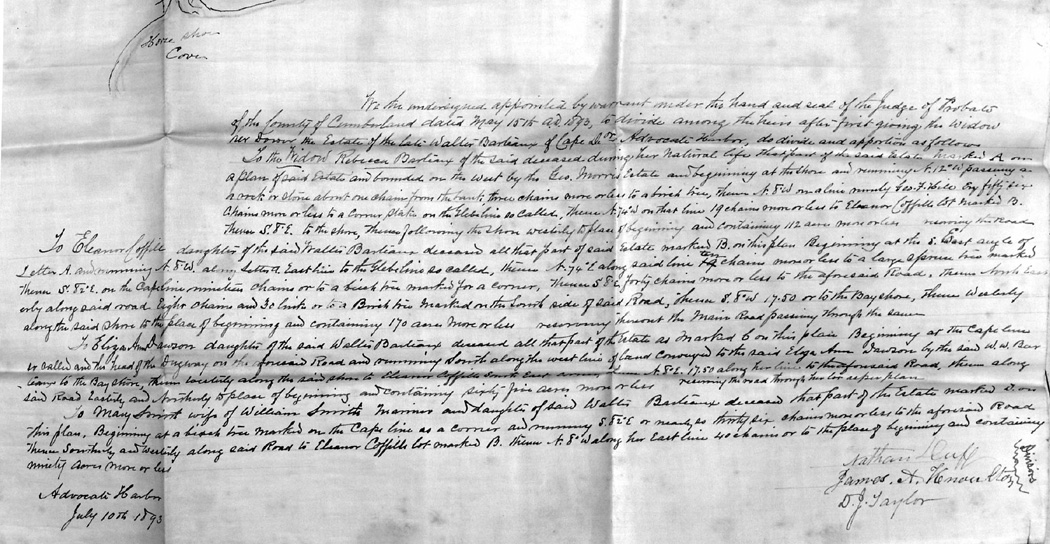 Horse shoe
Cove
We the undersigned appointed by warrant under the hand and seal of the Judge of Probate
of the County of Cumberland dated May 15th A.D. 1893, to divide among the heirs after first giving the widow
her Dower the Estate of the late Walter Barteaux of Cape Advocate Harbor, do divide and apportion as follows
To the Widow Rebecca Barteaux of the said deceased during her Natural life that part of the said Estate marked A on
a plan of said Estate and bounded on the West by the Geo. Morris Estate and beginning at the shore and running N. passing a
a rock or stone about one chain from the bank three chains more or less to a birch tree, thence N. 8° W on a line fifty six
Chains more or less to a corner stake on the Glebe line so called, thence N. 74° W on that line 19 chains more or less to Eleanor Coffill lot marked B.
thence S. 8° E. to the shore, thence following the shore westerly to place of beginning and containing 112 acres more or less reserving the Road
To Eleanor Coffill daughter of the said Walter Barteaux deceased all that part of said Estate marked B. on this plan Beginning at the S. East angle of
Letter A. and running N. 8° W. along East line to the Glebe line so called, thence N. 74° E along said line ten chains more or less to a large spruce tree marked
thence S. E. on the Cape line nineteen chains or to a birch tree marked for a corner, thence S. 8° E. forty chains more or less to the aforesaid Road, thence North East
erly along said road Eight chains and 30 links or to a Birch tree marked on the South side of said Road, thence S. 8° W 17.50 or to the Bayshore, thence Westerly
along the said shore to the place of beginning and containing 170 acres more or less reserving thereout the Main Road passing through the same
To Eliza Ann Dawson daughter of the said Walter Barteaux deceased all that part of the Estate as marked C on this plan Beginning at the Cape line
so called and the head of the Dugway on the Road and running South along the west line of land Conveyed to the said Eliza Ann Dawson by the said W. W. Bar
teaux to the Bay shore, thence westerly along the said shore to Eleanor Coffills South East corner N. 8° E. 17.50 along her line to the aforesaid Road, thence along
said Road Easterly and Northerly to place of beginning and containing sixty five acres more or less reserving the road through her lot as per plan
To Mary Smith wife of William Smith Mariner and daughter of said Walter Barteaux deceased that part of the Estate marked D. on
this plan, Beginning at a birch tree marked on the Cape line as a corner and running S. E or nearly so thirty six chains more or less to the aforesaid Road
thence Southerly and Westerly along said Road to Eleanor Coffills lot marked B. thence N. 8° W along her East line 40 chains or to the place of beginning and containing
ninety acres more or less
Advocate Harbor
July 10th 1893
Nathan Huff
James. A. Knowlton
D. J. Taylor